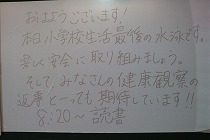 おはようございます!
本日小学校生活最後の水泳です。
楽しく安全に取り組みましょう。
そして、みなさんの健康観察の
返事とっても期待しています!!
8:20〜読書